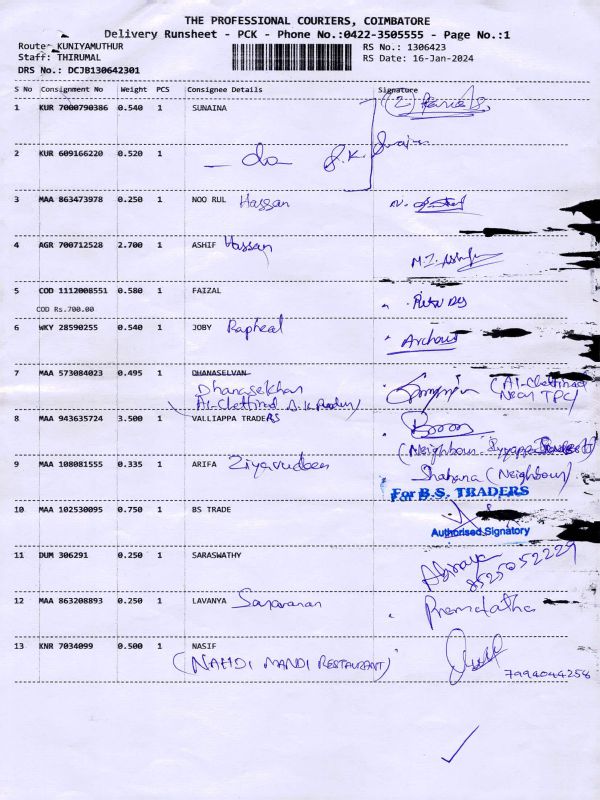 THE PROFESSIONAL COURIERS, COIMBATORE
Delivery Runsheet - PCK - Phone No.:0422-3505555 - Page No.:1
Route: KUNIYAMUTHUR RS No.: 1306423
Staff: THIRUMAL RS Date: 16-Jan-2024
DRS No.: DCJB130642301
S No Consignment No Weight PCS Consignee Details Signature
1 KUR 7000790386 0.540 1 SUNAINA (2)
2 KUR 609166220 0.520 1 - do
3 MAA 863473978 0.250 1 NOO RUL Hassan
4 AGR 700712528 2.700 1 ASHIF Hassan
5 COD 1112008551 0.580 1 FAIZAL
COD Rs.700.00
6 WKY 28590255 0.540 1 JOBY Rapheal
7 MAA 573084023 0.495 1 DHANASELVAN (Al-Chettinad
Dhanasekhan Near TPC)
Al-Chettinad
8 MAA 943635724 3.500 1 VALLIAPPA TRADERS
(Neighbour
9 MAA 108081555 0.335 1 ARIFA Ziyavudeen Shahana (Neighbour)
For B.S. TRADERS
10 MAA 102530095 0.750 1 BS TRADE
Authorised Signatory
11 DUM 306291 0.250 1 SARASWATHY
8525052229
12 MAA 863208893 0.250 1 LAVANYA Saravanan Premalatha
13 KNR 7034099 0.500 1 NASIF
(NAHDI MANDI RESTAURANT) 7994044258